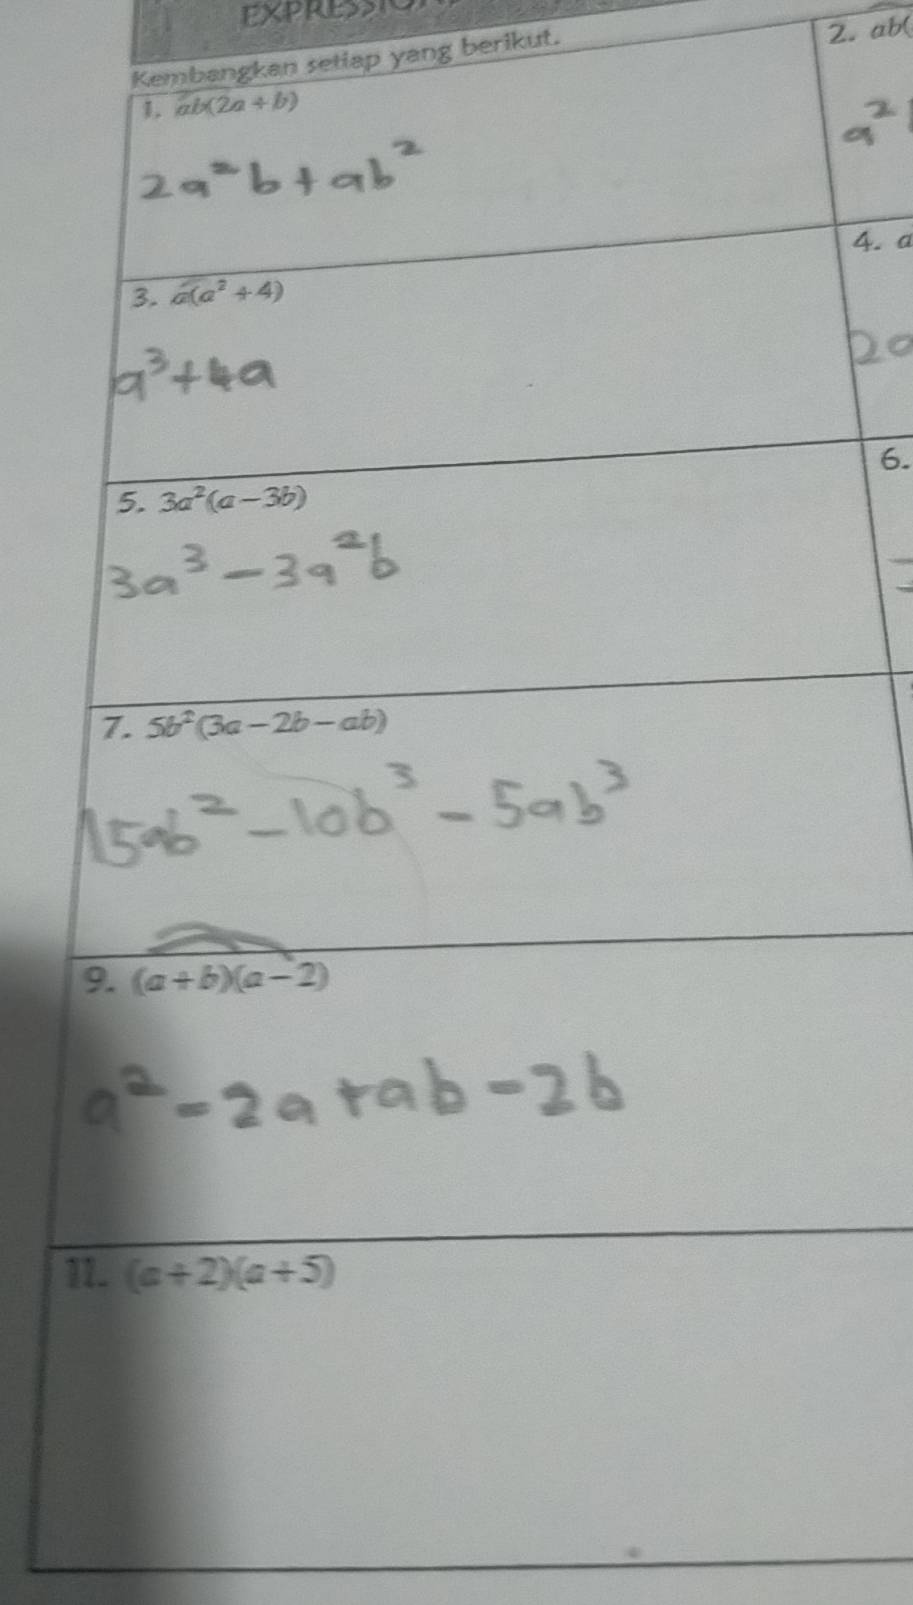 Kembangkan setiap yang berikut.
1. ab(2a + b)
2. ab(
2a²b + ab²
a²
3. a(a² + 4)
4. a
a³ + 4a
2a
5. 3a²(a − 3b)
6.
3a³ − 3a²b
7. 5b²(3a − 2b − ab)
15ab² − 10b³ − 5ab³
9. (a + b)(a − 2)
a² − 2a + ab − 2b
11. (a + 2)(a + 5)